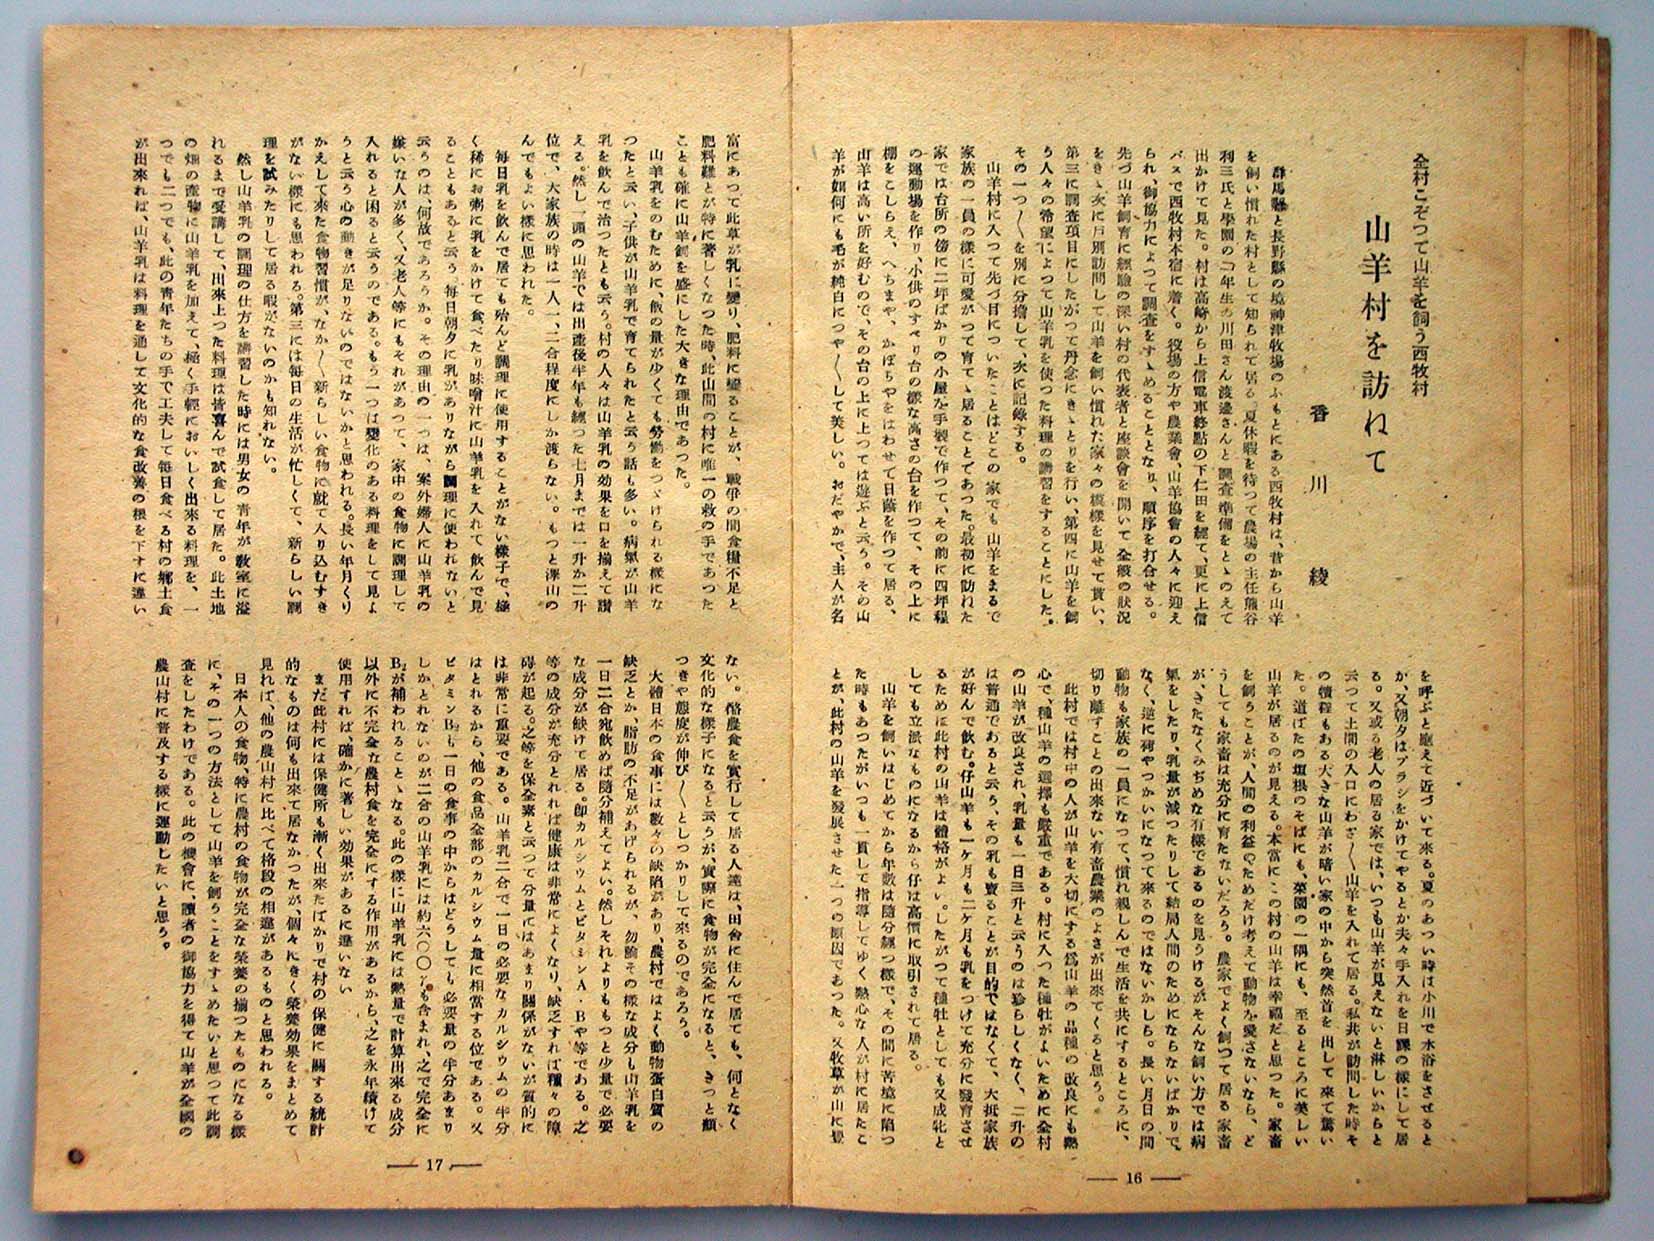 全村こぞつて山羊を飼う西牧村
山羊村を訪ねて
香川綾
群馬縣と長野縣の境神津牧場のふもとにある西牧村は、昔から山羊
を飼い慣れた村として知られて居る。夏休暇を待つて農場の主任熊谷
利三氏と學園の二年生の川田さん渡邊さんと調査準備をとゝのえて
出かけて見た。村は高崎から上信電車終點の下仁田を經て、更に上信
バスで西牧村本宿に着く。役場の方や農業會、山羊協會の人々に迎え
られ、御協力によつて調査をすゝめることとなり、順序を打合せる。
先づ山羊飼育に經驗の深い村の代表者と座談會を開いて全般の狀況
をきゝ次に戸別訪問して山羊を飼い慣れた家々の模樣を見せて貰い、
第三に調査項目にしたがつて丹念にきゝとりを行い、第四に山羊を飼
う人々の希望によつて山羊乳を使つた料理の講習をすることにした。
その一つ〳〵を別に分擔して、次に記錄する。
山羊村に入つて先づ目についたことはどこの家でも山羊をまるで
家族の一員の樣に可愛がつて育てゝ居ることであつた。最初に訪ねた
家では台所の傍に二坪ばかりの小屋を手製で作つて、その前に四坪程
の運動場を作り、小供のすべり台の樣な高さの台を作つて、その上に
棚をこしらえ、へちまや、かぼちやをはわせて日蔭を作つて居る、
山羊は高い所を好むので、その台の上に上つては遊ぶと云う。その山
羊が如何にも毛が純白につや〳〵して美しい。おだやかで、主人が名
を呼ぶと應えて近づいて來る。夏のあつい時は小川で水浴をさせると
か、又朝夕はブラシをかけてやるとか夫々手入れを日課の樣にして居
る。又或る老人の居る家では、いつも山羊が見えないと淋しいからと
云つて土間の入口にわざ〳〵山羊を入れて居る。私共が訪問した時そ
の犢程もある大きな山羊が暗い家の中から突然首を出して來て驚い
た。道ばたの垣根のそばにも、菜園の一隅にも、至るところに美しい
山羊が居るのが見える。本當にこの村の山羊は幸福だと思つた。家畜
を飼うことが、人間の利益のためだけ考えて動物を愛さないなら、ど
うしても家畜は充分に育たないだろう。農家でよく飼つて居る家畜
が、きたなくみぢめな有樣であるのを見うけるがそんな飼い方では病
氣をしたり、乳量が減つたりして結局人間のためにならないばかりで、
なく、逆に死やつかいになつて來るのではないかしら。長い月日の間
動物も家族の一員になつて、慣れ親しんで生活を共にするところに、
切り離すことの出來ない有畜農業のよさが出來てくると思う。
此村では村中の人が山羊を大切にする爲山羊の品種の改良にも熱
心で、種山羊の選擇も嚴重である。村に入つた種牡がよいために全村
の山羊が改良され、乳量も一日三升と云うのは珍らしくなく、二升の
は普通であると云う、その乳も賣ることが目的ではなくて、大抵家族
が好んで飲む。仔山羊も一ケ月も二ケ月も乳をつけて充分に發育させ
るために此村の山羊は體格がよい。したがつて種牡としても又成牝と
しても立派なものになるから仔は高價に取引されて居る。
山羊を飼いはじめてから年數は隨分經つ樣で、その間に苦境に陷つ
た時もあつたがいつも一貫して指導してゆく熱心な人が村に居たこ
とが、此村の山羊を發展させた一つの原因であつた。又牧草が山に豊
— 16 —
富にあつて此草が乳に變り、肥料に變ることが、戰爭の間食糧不足と
肥料難とが特に著しくなつた時、此山間の村に唯一の救の手であつた
ことも確に山羊飼を盛にした大きな理由であつた。
山羊乳をのむために、飯の量が少くても勞働をつゞけられる樣にな
つたと云い、子供が山羊乳で育てられたと云う話も多い。病氣が山羊
乳を飲んで治つたとも云う。村の人々は山羊乳の効果を口を揃えて讃
える。然し一頭の山羊では出產後半年も經つた七月までは一升か二升
位で、大家族の時は一人一、二合程度にしか渡らない。もつと澤山の
んでもよい樣に思われた。
每日乳を飲んで居ても殆んど調理に使用することがない樣子で、極
く稀にお粥に乳をかけて食べたり味噌汁に山羊乳を入れて飲んで見
ることもあると云う。每日朝夕に乳がありながら調理に使われないと
云うのは、何故であろうか。その理由の一つは、案外婦人に山羊乳の
嫌いな人が多く、又老人等にもそれがあつて、家中の食物に調理して
入れると困ると云うのである。もう一つは變化のある料理をして見よ
うと云う心の動きが足りないのではないかと思われる。長い年月くり
かえして來た食物習慣が、なか〳〵新らしい食物に就て入り込むすき
がない樣にも思われる。第三には每日の生活が忙しくて、新らしい調
理を試みたりして居る暇がないのかも知れない。
然し山羊乳の調理の仕方を講習した時には男女の青年が敎室に溢
れるまで受講して、出來上つた料理は皆喜んで試食して居た。此土地
の畑の產物に山羊乳を加えて、極く手輕においしく出來る料理を、一
つでも二つでも、此の青年たちの手で工夫して每日食べる村の鄕土食
が出來れば、山羊乳は料理を通して文化的な食改善の根を下すに違い
ない。酪農食を實行して居る人達は、田舍に住んで居ても、何となく
文化的な樣子になると云うが、實際に食物が完全になると、きつと顏
つきや態度が伸び〳〵としつかりして來るのであろう。
大體日本の食事には數々の缺陷があり、農村ではよく動物蛋白質の
缺乏とか、脂肪の不足があげられるが、勿論その樣な成分も山羊乳を
一日二合宛飲めば隨分補えてよい。然しそれよりももつと少量で必要
な成分が缺けて居る。卽カルシウムとビタミンA・Bや等である。之
等の成分が充分とれれば健康は非常によくなり、缺乏すれば種々の障
碍が起る。之等を保全素と云つて分量にはあまり關係がないが質的に
は非常に重要である。山羊乳二合で一日の必要なカルシウムの半分
はとれるから、他の食品全部のカルシウム量に相當する位である。又
ビタミンB₂も一日の食事の中からはどうしても必要量の半分あまり
しかとれないのが二合の山羊乳には約六〇〇γも含まれ、之で完全に
B₂が補われることゝなる。此の樣に山羊乳には熱量で計算出來る成分
以外に不完全な農村食を完全にする作用があるから、之を永年續けて
使用すれば、確かに著しい効果があるに違いない
まだ此村には保健所も漸く出來たばかりで村の保健に關する統計
的なものは何も出來て居なかつたが、個々にきく榮養効果をまとめて
見れば、他の農山村に比べて格段の相違があるものと思われる。
日本人の食物、特に農村の食物が完全な榮養の揃つたものになる樣
に、その一つの方法として山羊を飼うことをすゝめたいと思つて此調
査をしたわけである。此の機會に、讀者の御協力を得て山羊が全國の
農山村に普及する樣に運動したいと思う。
— 17 —